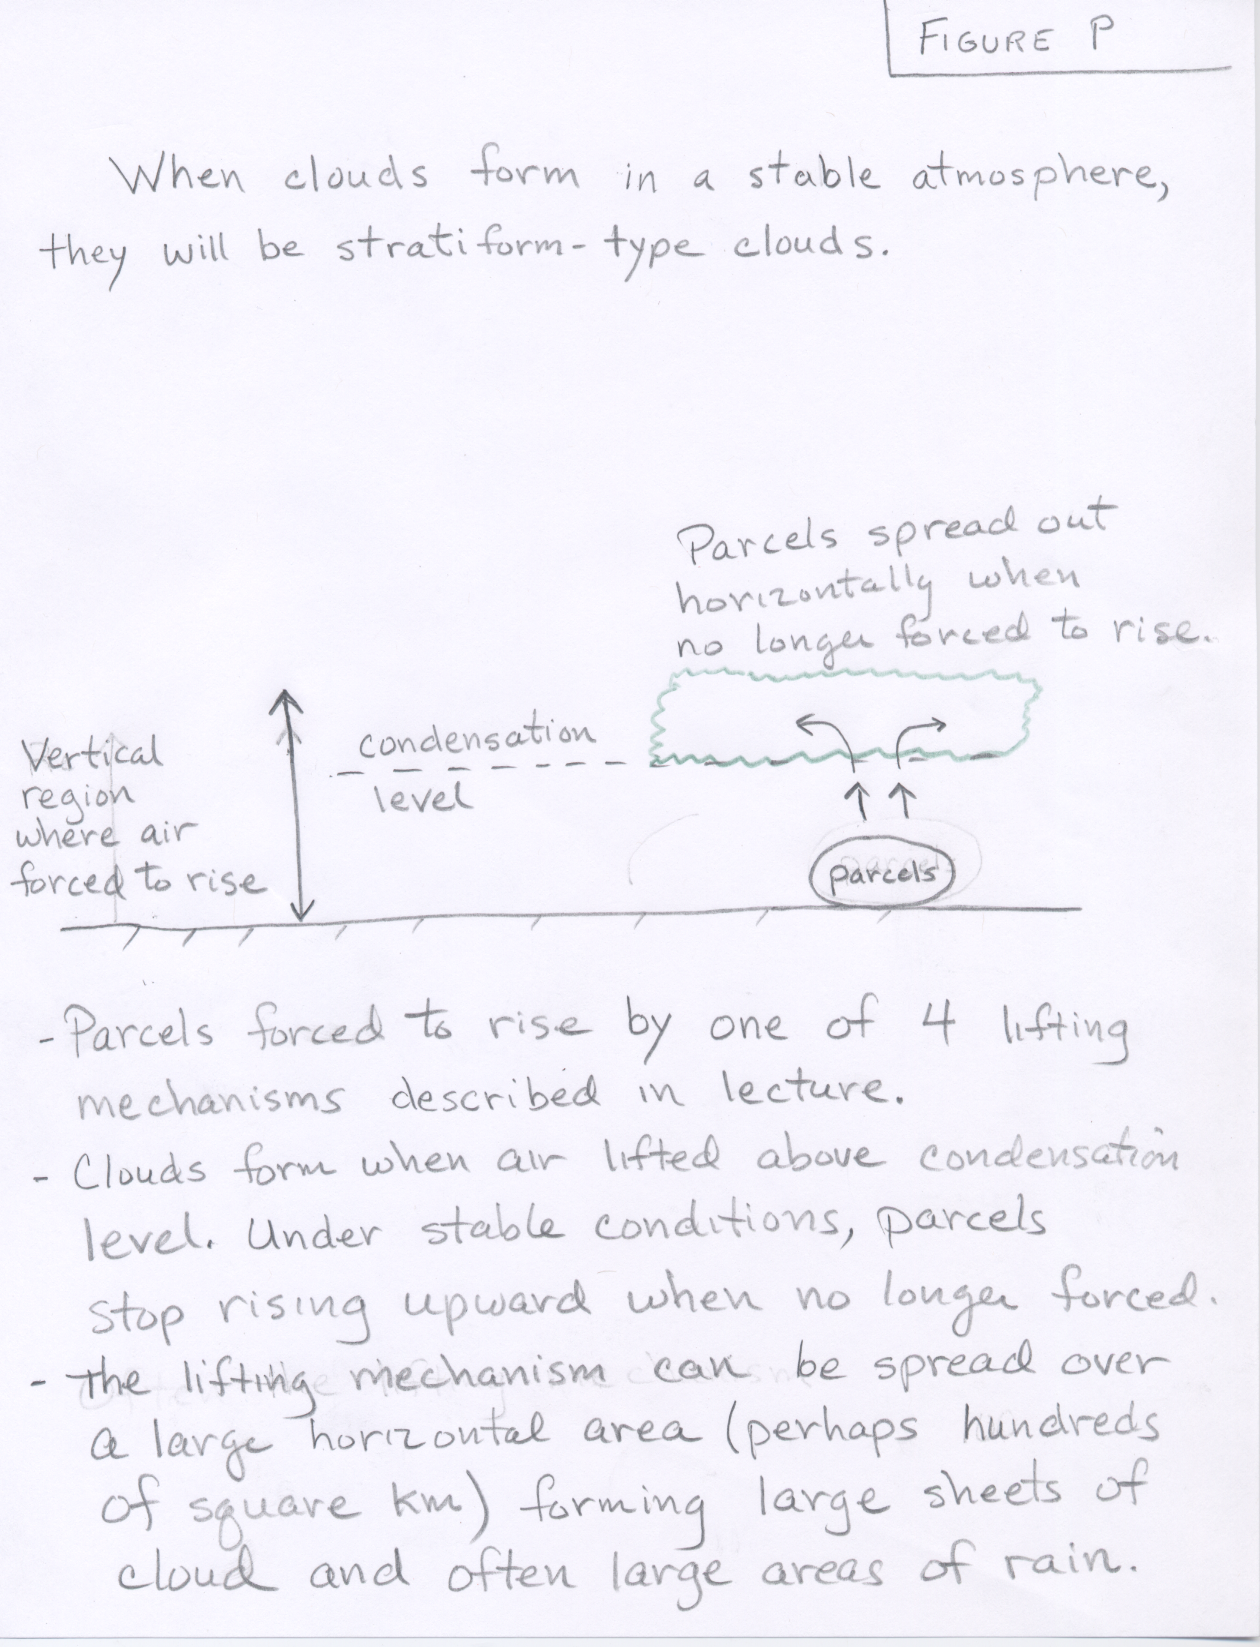 FIGURE P
When clouds form in a stable atmosphere,
they will be stratiform-type clouds.
Parcels spread out
horizontally when
no longer forced to rise.
Vertical
region
where air
forced to rise
condensation
level
parcels
- Parcels forced to rise by one of 4 lifting
mechanisms described in lecture.
- Clouds form when air lifted above condensation
level. Under stable conditions, parcels
stop rising upward when no longer forced.
- The lifting mechanism can be spread over
a large horizontal area (perhaps hundreds
of square km) forming large sheets of
cloud and often large areas of rain.